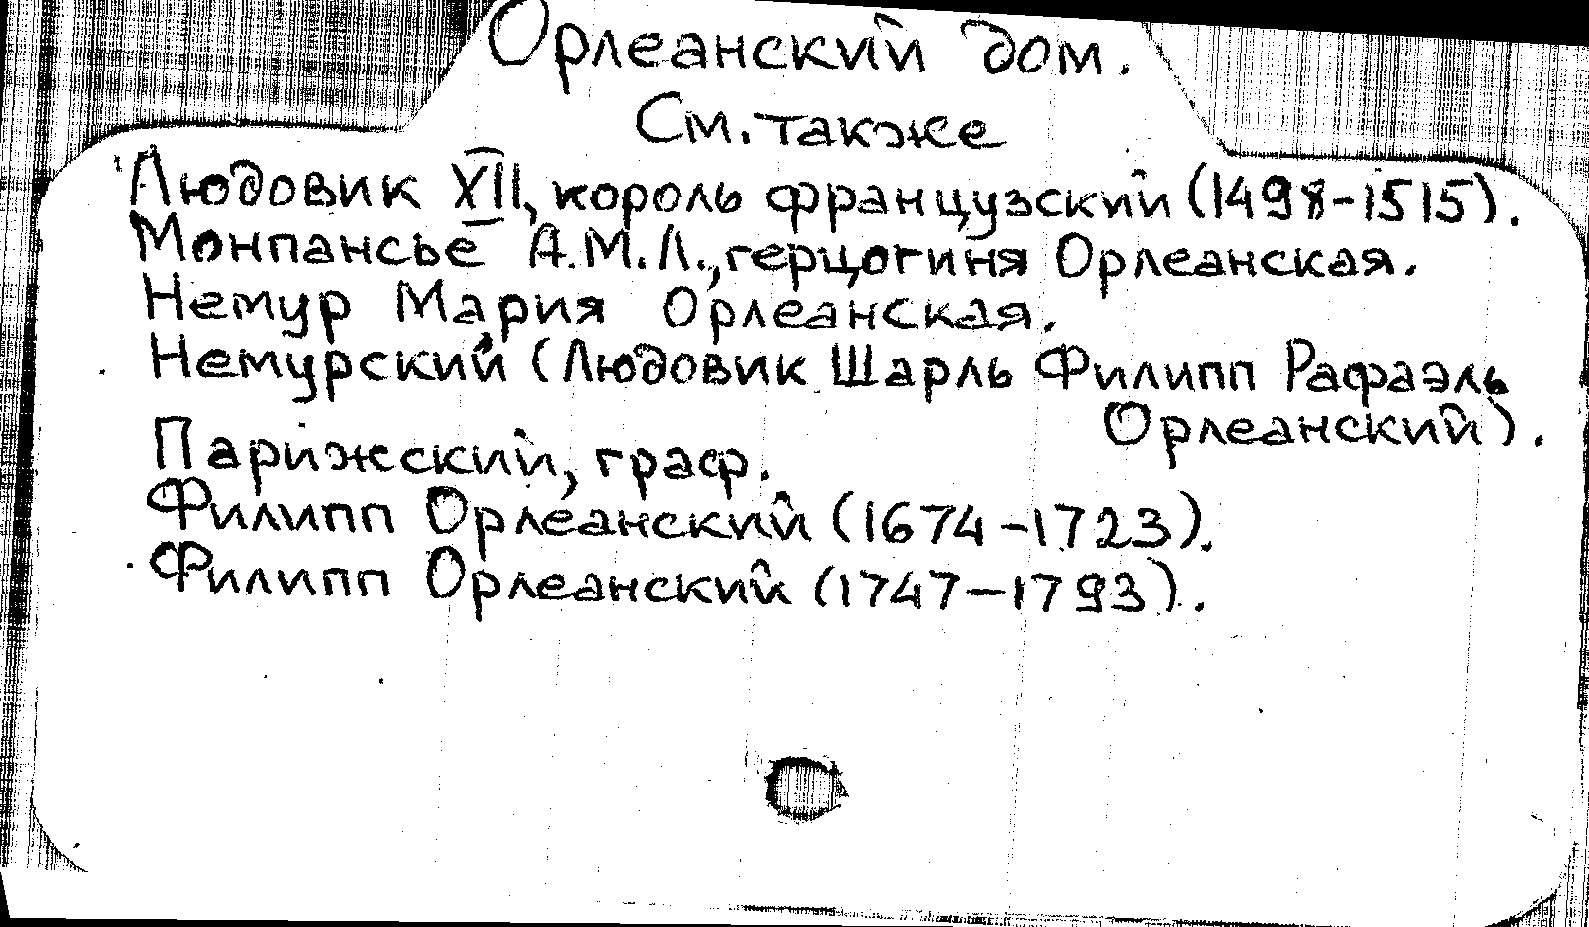 Орлеанский дом.
См. также
Людовик XII, король французский (1498-1515).
Монпансье А.М.Л., герцогиня Орлеанская.
Немур Мария Орлеанская.
Немурский (Людовик Шарль Филипп Рафаэль
Орлеанский).
Парижский, граф.
Филипп Орлеанский (1674-1723).
Филипп Орлеанский (1747-1793).